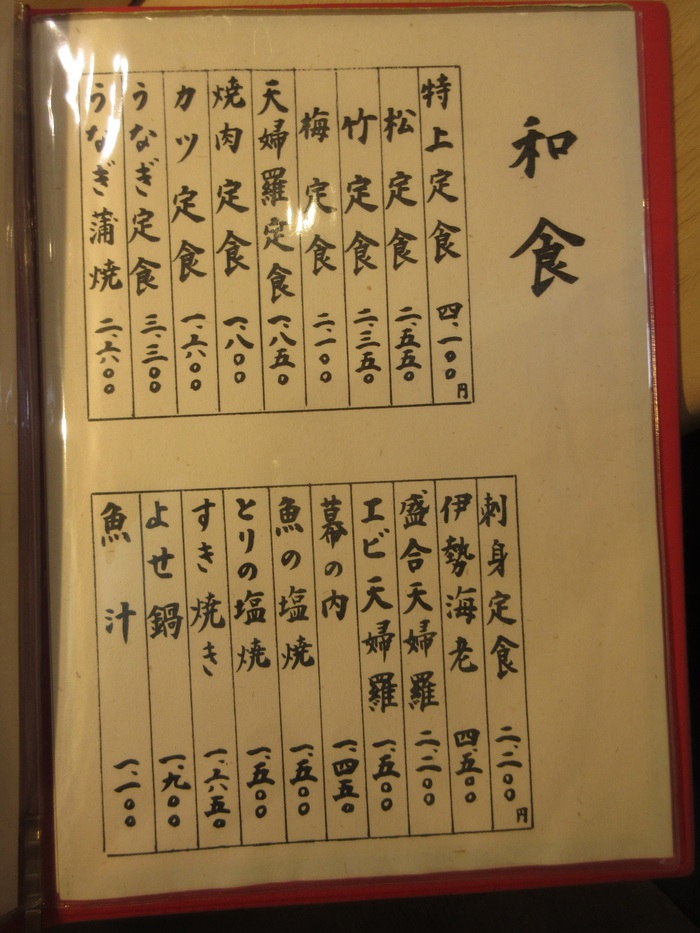 和食
特上定食 四、一〇〇円
松定食 二、五五〇
竹定食 二、三五〇
梅定食 二、一〇〇
天婦羅定食 一、八五〇
焼肉定食 一、八〇〇
カツ定食 一、六〇〇
うなぎ定食 三、三〇〇
うなぎ蒲焼 二、六〇〇
刺身定食 二、二〇〇円
伊勢海老 四、五〇〇
盛合天婦羅 二、二〇〇
エビ天婦羅 一、五〇〇
幕の内 一、四五〇
魚の塩焼 一、五〇〇
とりの塩焼 一、五〇〇
すき焼き 一、六五〇
よせ鍋 一、九〇〇
魚汁 一、一〇〇